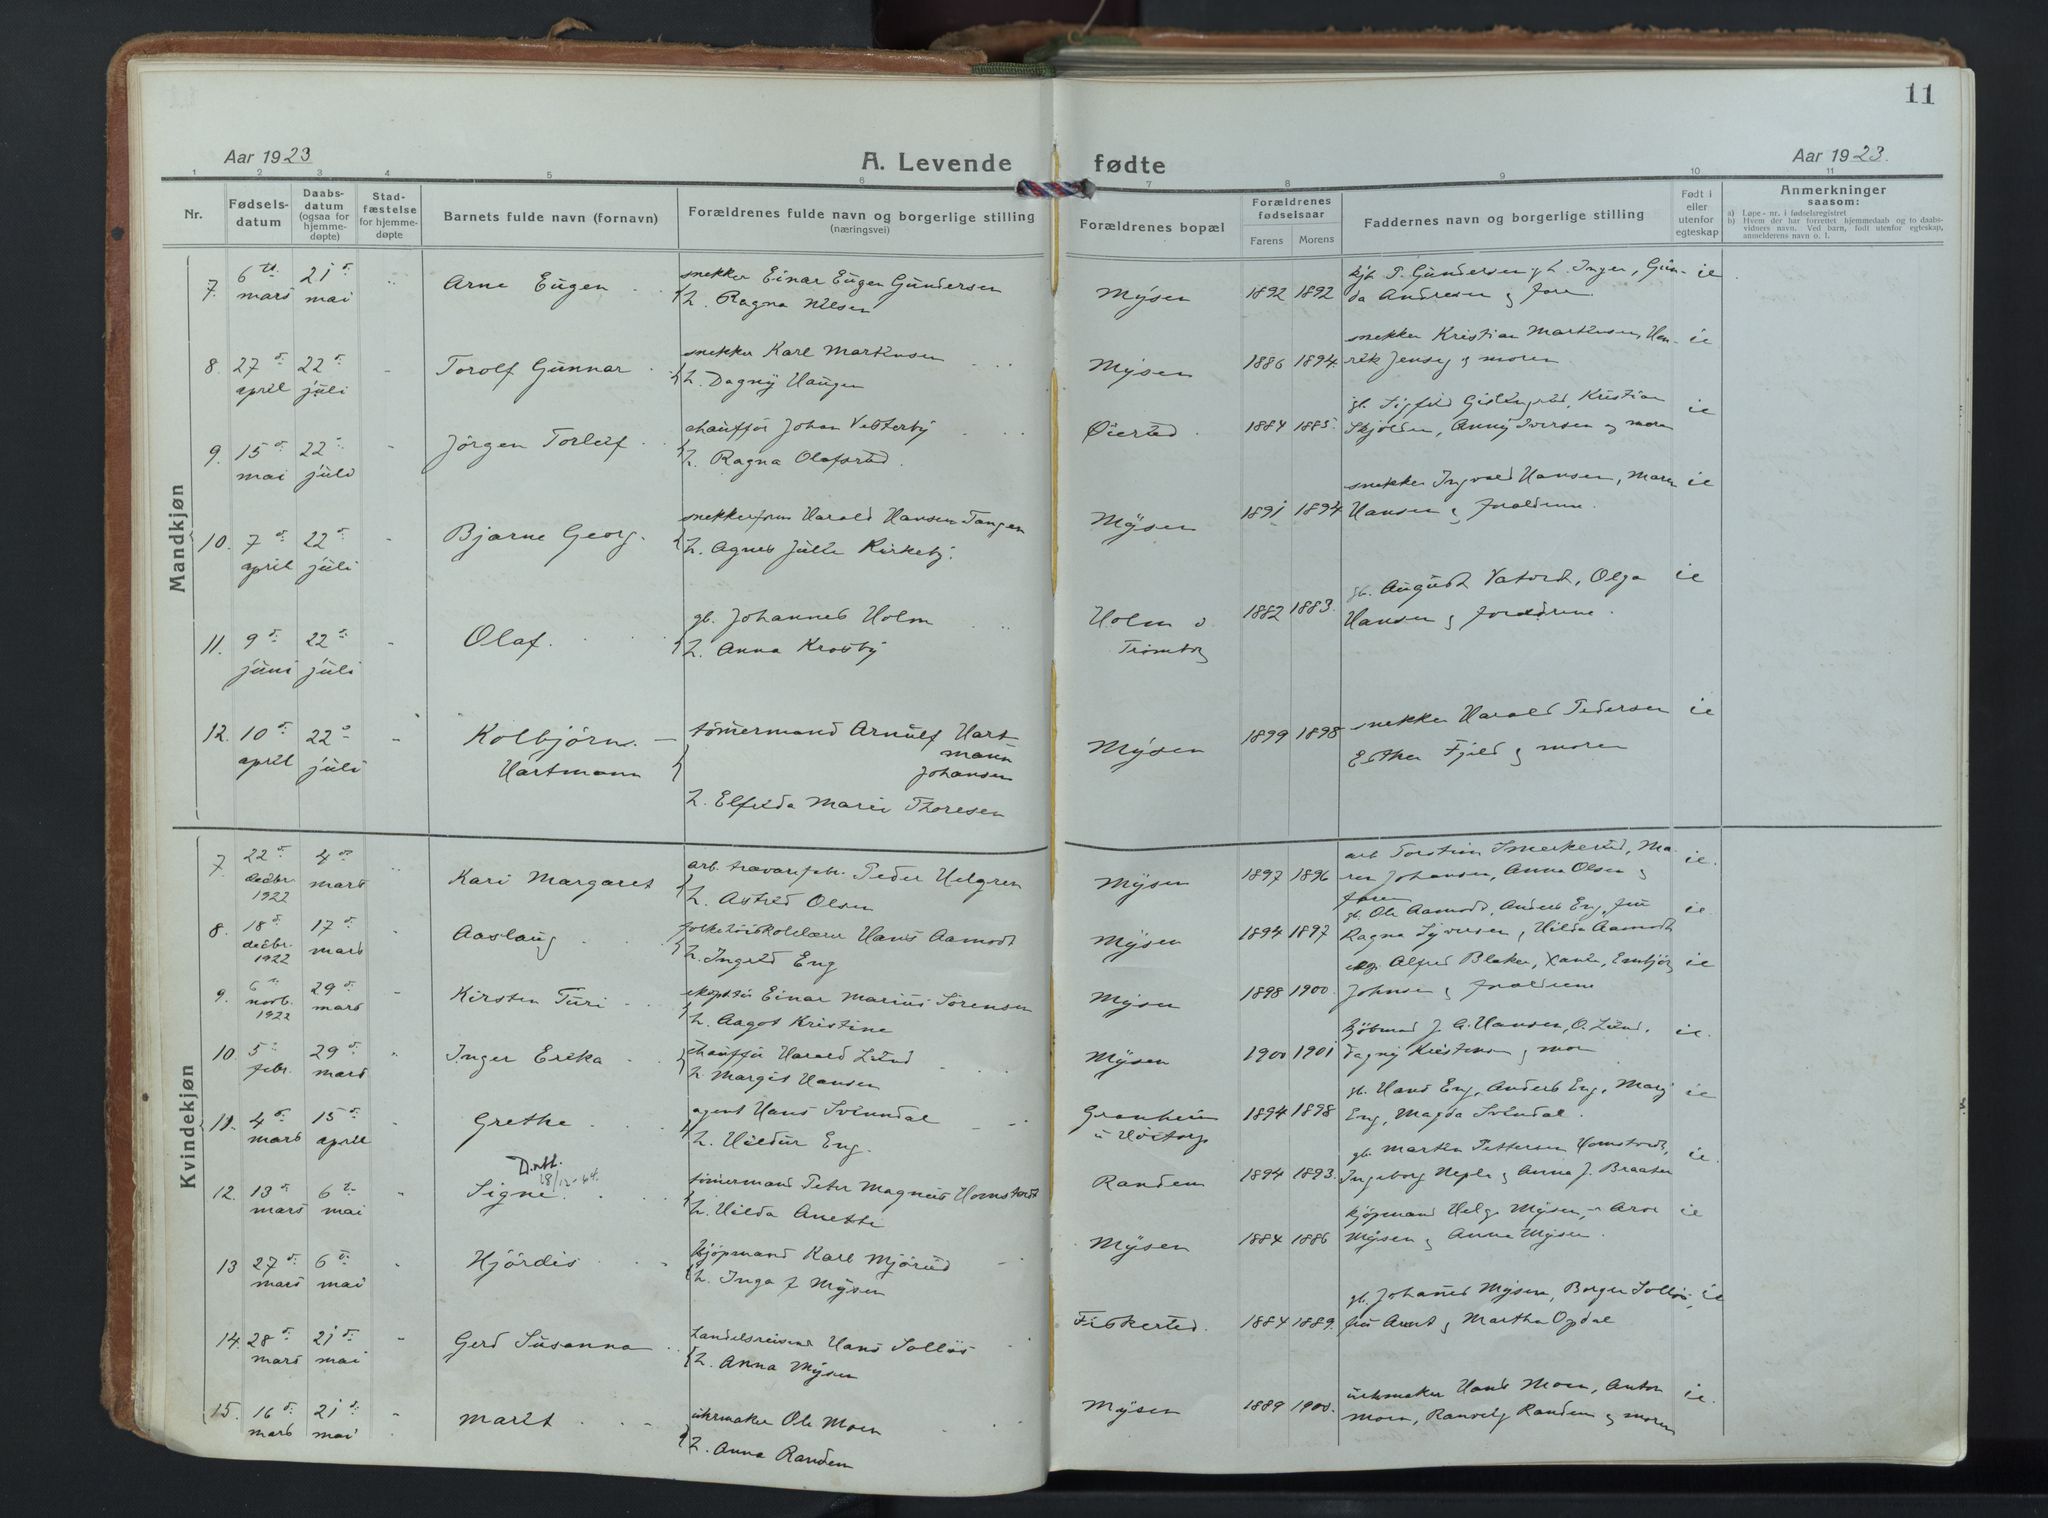 11
Aar 1923
A. Levende fødte
Aar 1923.
1 2 3 4 5 6 7 8 9 10 11
Nr.
Fødsels-
datum
Daabs-
datum
(ogsaa for
hjemme-
døpte)
Stad-
fæstelse
for hjemme-
døpte
Barnets fulde navn (fornavn)
Forældrenes fulde navn og borgerlige stilling
(næringsvei)
Forældrenes bopæl
Forældrenes
fødselsaar
Farens Morens
Faddernes navn og borgerlige stilling
Født i
eller
utenfor
egteskap
Anmerkninger
saasom:
a) Løpe-nr. i fødselsregistret
b) Hvem der har forrettet hjemmedaab og to daabs-
vidners navn. Ved barn, født utenfor egteskap,
anmelderens navn o. l.
Mandkjøn
7. 6 mars 21 mai Arne Eugen
snekker Einar Eugen Gundersen
Ragna Nilsen
Mysen 1892 1892
Gundersen Inger, Gun-
da Andresen
ie
8. 27 april 22 juli Torolf Gunnar
snekker Karl Markusen
Dagny Haugen
Mysen 1886 1894
snekker Kristian Markusen, Hen-
rik Jensen og moren
ie
9. 15 mai 22 juli Jörgen Torleif
chauffør Johan Vesterby
Ragna Olafsrud
Øierud 1884 1885
Kristian
Skjolden, Anny Iversen og moren
ie
10. 7 april 22 juli Bjarne Georg.
Harald Hansen Tangen
Agnes Julie Kirkeby.
Mysen 1891 1894
snekker Ingvald Hansen, Maren
Hansen og foreldrene
ie
11. 9 juni 22 juli Olaf.
gb. Johannes Holm
Anna Krosby
Holm v
Trömborg
1882 1883.
gb. August Vatvedt, Olga
Hansen og foreldrene.
ie
12. 10 april 22 juli Kolbjörn
Hartmann
tömermand Arnulf Hart
mann
Johansen
Elfrida Marie Thoresen
Mysen 1899 1898
snekker Harald Pedersen
Esther Fjeld og moren
ie
Kvindekjøn
7. 22 decbr. 1922 4 mars Kari Margaret
arb. trævarefabr. Peder Helgren
Astrid Olsen
Mysen 1897 1896
arb Torstein Smerkerud, Ma-
ren Johansen, Anna Olsen og
faren
ie.
8. 18 decbr. 1922 17 mars Aaslaug
folkehöiskolelærer Hans Aamodt
Ingrid Eng
Mysen 1894 1897
gb. Ole Aamodt, Anders Eng, fru
Ragna Syversen og Hilda Aamodt
ie.
9. 6 novb. 1922 29 mars Kirsten Turi
Einar Marius Sörensen
Aagot Kristine
Mysen 1898 1900.
Alfred Blaker, Xanti, Embjörg
Johnsen og foreldrene
ie
10. 5 febr. 29 mars Inger Erika
chauffør Harald Lund
Margit Hansen
Mysen 1900 1901
kjöbmand J. A. Hansen, O. Lund,
Dagny Kristensen og mor
ie.
11. 4 mars 15 april Grethe
agent Hans Svendal
Hildur Eng.
Granheim
v Höitorp
1894 1898
gb. Hans Eng, Anders Eng, Mary
Eng, Magda Svendal.
ie
12. 13 mars 6 mai Signe.
D.att.
18/12-64.
tömermand Peter Magnus Homstvedt
Hilda Anette
Randem 1894 1893.
gb. Martin Pettersen Homstvedt,
Ingeborg Neple og Anna J. Braaten
ie.
13 27 mars 6 mai Hjördis
kjöpmand Karl Mjörud
Inga J Mysen
Mysen 1884 1886
kjöpmand Helge Mysen, Arne
Mysen og Anna Mysen.
ie
14. 28 mars 21 mai Gerd Susanna
handelsreisende Hans Solløs
Anna Mysen
Fiskerud. 1884 1889.
gb. Johannes Mysen, Borger Solløs,
fru Arnt og Martha Opdal
ie
15. 16 mars 21 mai Marit
uhrmaker Ole Moen
Anna Randem
Mysen 1889 1900.
urhmaker Hans Moen, Anton
Moen, Ranveig Randem og moren
ie.